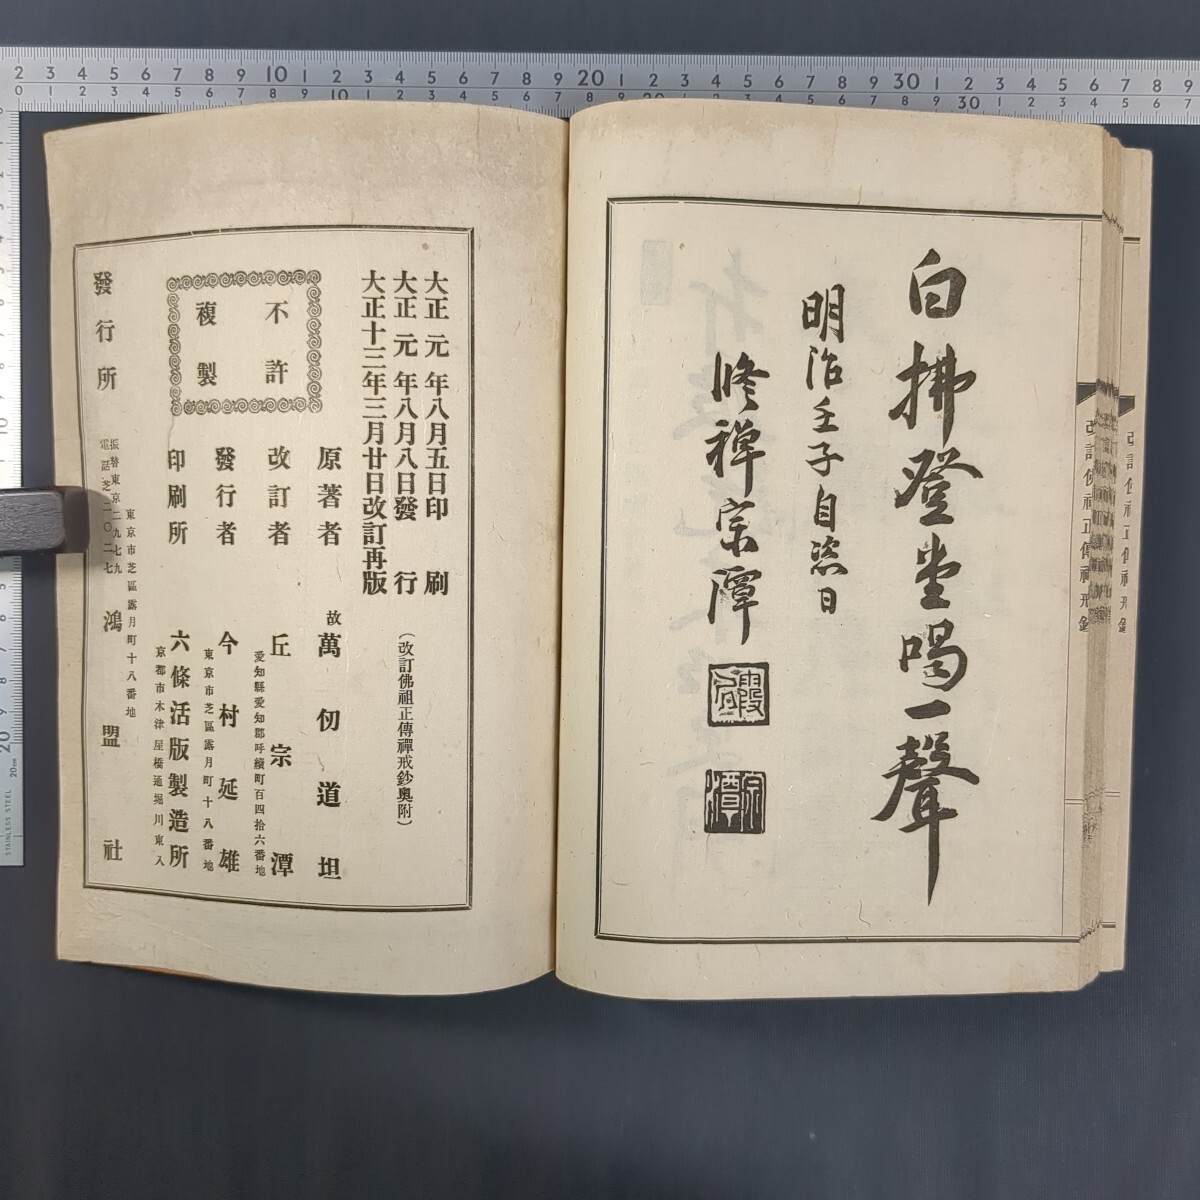 白拂登堂喝一聲
明治壬子自恣日
修禪宗潭
大正元年八月五日印刷
大正元年八月八日發行
大正十三年三月廿日改訂再版
(改訂佛祖正傳禪戒鈔奧附)
不許
複製
原著者 故 萬仞道坦
改訂者 丘宗潭
愛知縣愛知郡呼續町百四拾六番地
發行者 今村延雄
東京市芝區露月町十八番地
印刷所 六條活版製造所
京都市木津屋橋通堀川東入
發行所 鴻盟社
東京市芝區露月町十八番地
振替東京二九七九
電話芝二〇二七
改訂佛祖正傳禪戒鈔